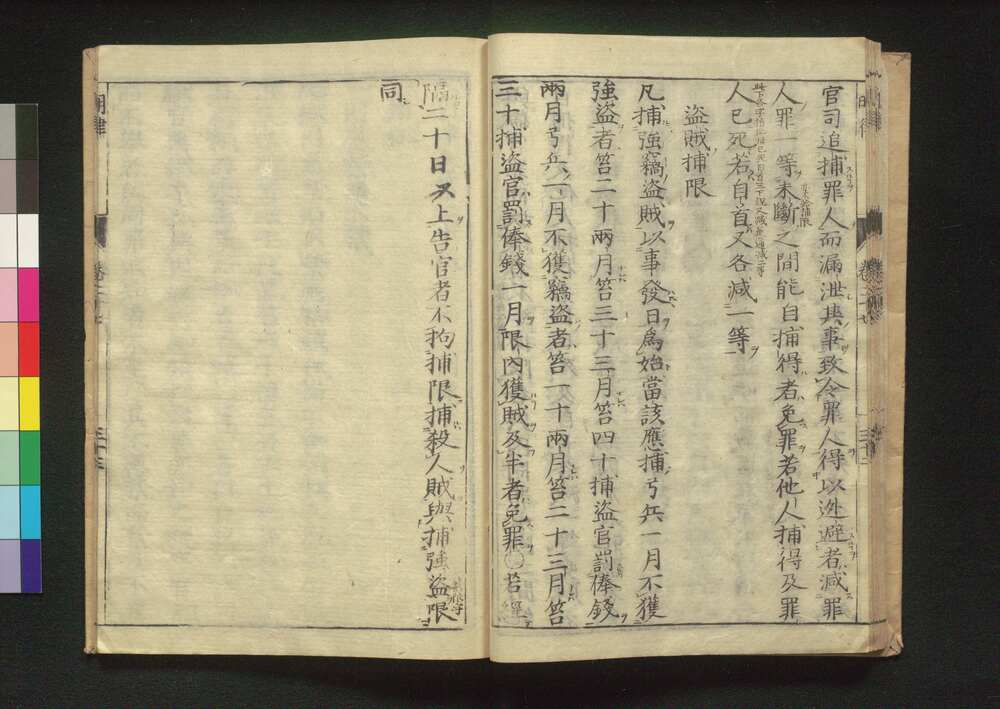 官司追捕罪人而漏泄其事致令罪人得以逃避者減罪
人罪一等未斷之間能自捕得者免罪若他人捕得及罪
人已死若自首又各減一等
盜賊捕限
凡捕強竊盜賊以事發日為始當該應捕弓兵一月不獲
強盜者笞二十兩月笞三十三月笞四十捕盜官罰俸錢
兩月弓兵一月不獲竊盜者笞一十兩月笞二十三月笞
三十捕盜官罰俸錢一月限內獲賊及半者免罪○若經
隔二十日以上告官者不拘捕限捕殺人賊與捕強盜限
同
明律
卷二十七
三十三